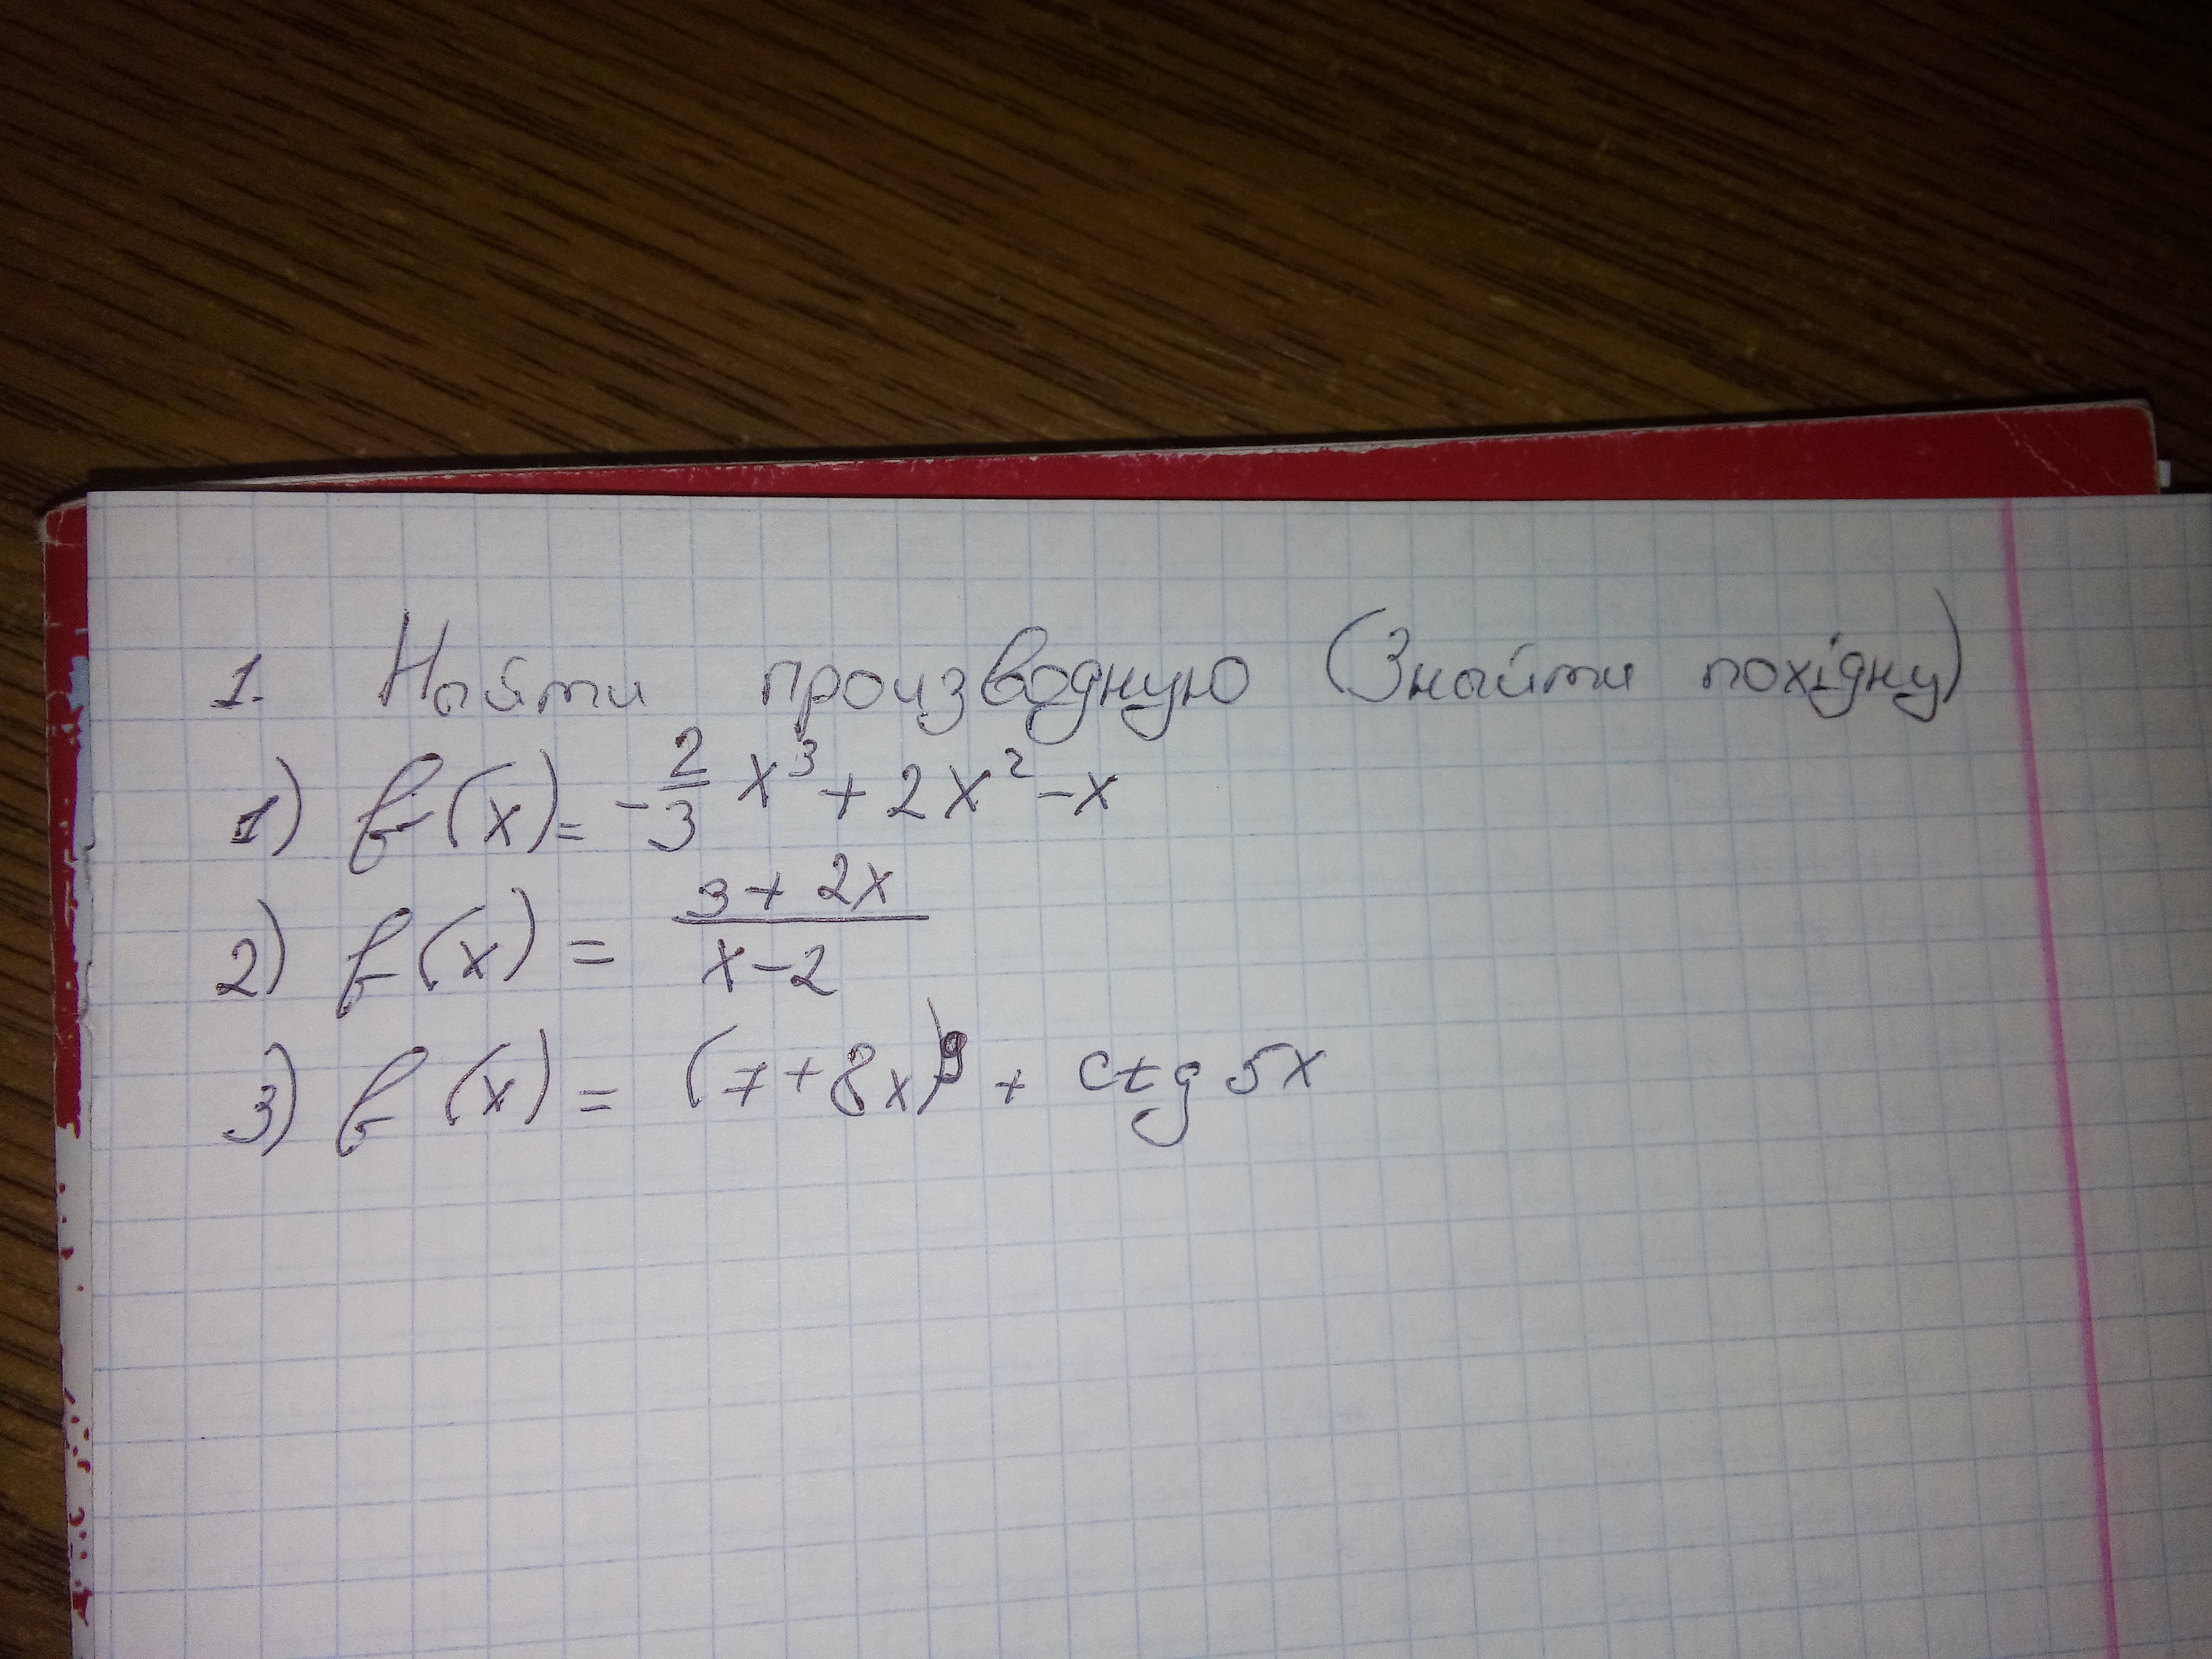 1. Найти производную (Знайти похідну)
1) f(x) = -2/3 x³ + 2x² - x
2) f(x) = (3 + 2x)/(x - 2)
3) f(x) = (7 + 8x)⁹ + ctg 5x